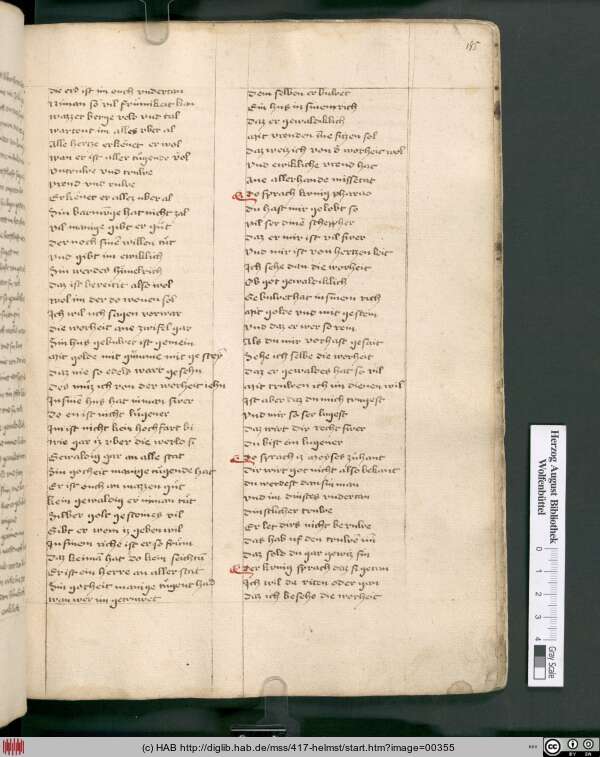 185
die erd ist im ouch vndertan
Niman so vil frümikeit kan
wazzer berge velt vnd tal
wartent im alles vber al
Alle hertze erkennet er wol
wan er ist aller tugende vol
vntruwe vnd truwe
vreud vnd ruwe
Erkennet er alles vber al
Sin barmung hat nicht zal
vil manige gibt er gut
Der noch sinem willen tut
vnd gibt im ewiklich
Sin werdes himelrich
Daz ist bereitit also wol
wol im der do wonen sol
Ich wil uch sagen vorwar
die worheit ane zwifel gar
Sin hus gebuwet ist gemein
mit golde mit
Daz nie so edels wart gesehn
Des muz ich von der worheit iehn
In sinem hus hat niman swer
Do en ist nicht lugener
Im ist nicht kein hochfart bi
wie gar er vber die werlt si
Gewaldig gar an alle stat
Sin gotheit manige tugende hat
Er ist ouch an mazzen gut
kein gewaldig er niman tut
Silber golt gesteines vil
Gibt er wem iz geben wil
In sinem riche ist er so frum
Daz keinem hat do kein
Er ist ein herre an aller stat
Sin gotheit manige tugent had
wan wer im getruwet
Dem selben er buwet
Ein hus in sinem rich
Daz er gewaldiklich
mit vreuden sitzen sol
Daz weiz ich von der worheit wol
vnd ewikliche vreud hat
Ane allerhande missetat
Do sprach kunig pharao
Du hast mir gelobt so
vil ser dinen schepher
Daz er mir ist vil swer
vnd mir ist von hertzen leit
Ich sehe dan die worheit
Ob got gewaldiklich
Gebuwet hat in sinem rich
mit golde vnd mit gestein
vnd daz er wer so rein
Als du mir vor hast geseit
Sehe ich selbe die worheit
Daz er gewaldes hat so vil
mit truwen ich im dienen wil
Ist aber daz du mich trugest
vnd mir so ser lugest
Daz wirt dir recht swer
Du bist ein lugener
Do sprach moyses zuhant
Dir wirt got nicht also bekant
du werdest dan sin man
vnd im dinstes vndertan
dinstlicher truwe
Er let dirs nicht
Daz hab uf den truwen min
Daz solt du gar gewis sin
Der kunig sprach
Ich wil da riten oder gan
daz ich besehe die worheit
Herzog August Bibliothek
Wolfenbüttel
0
1
2
3
4
Gray Scale
(c) HAB http://diglib.hab.de/mss/417-helmst/start.htm?image=00355
BY SA